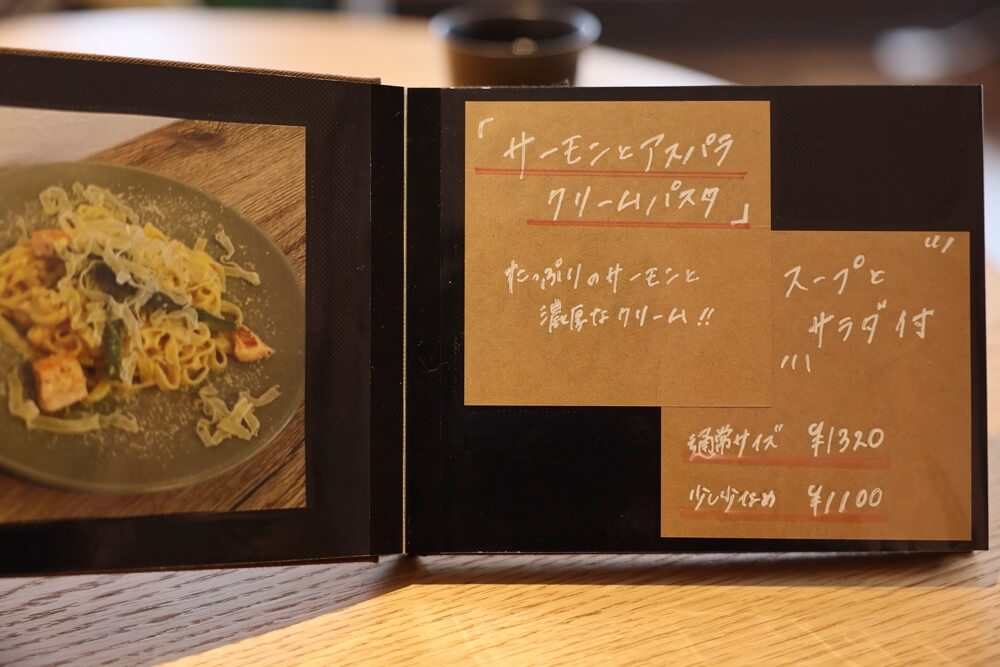 「サーモンとアスパラ
クリームパスタ」
たっぷりのサーモンと
濃厚なクリーム!!
スープと
サラダ付
通常サイズ ¥1320
少し少なめ ¥1100